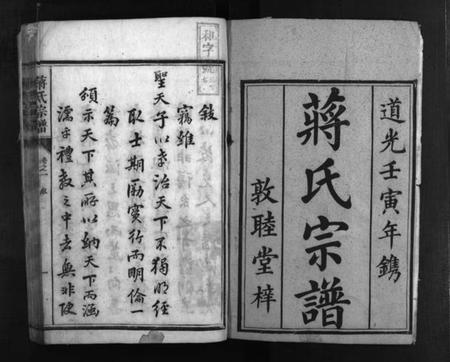 道光壬寅年鐫
蔣氏宗譜
敦睦堂梓
敘
竊維
聖天子以孝治天下不獨明經
取士期勵實行而明倫一
篇
頒示天下其所以納天下而涵
濡乎禮教之中者無非使
蔣氏宗譜
卷之一